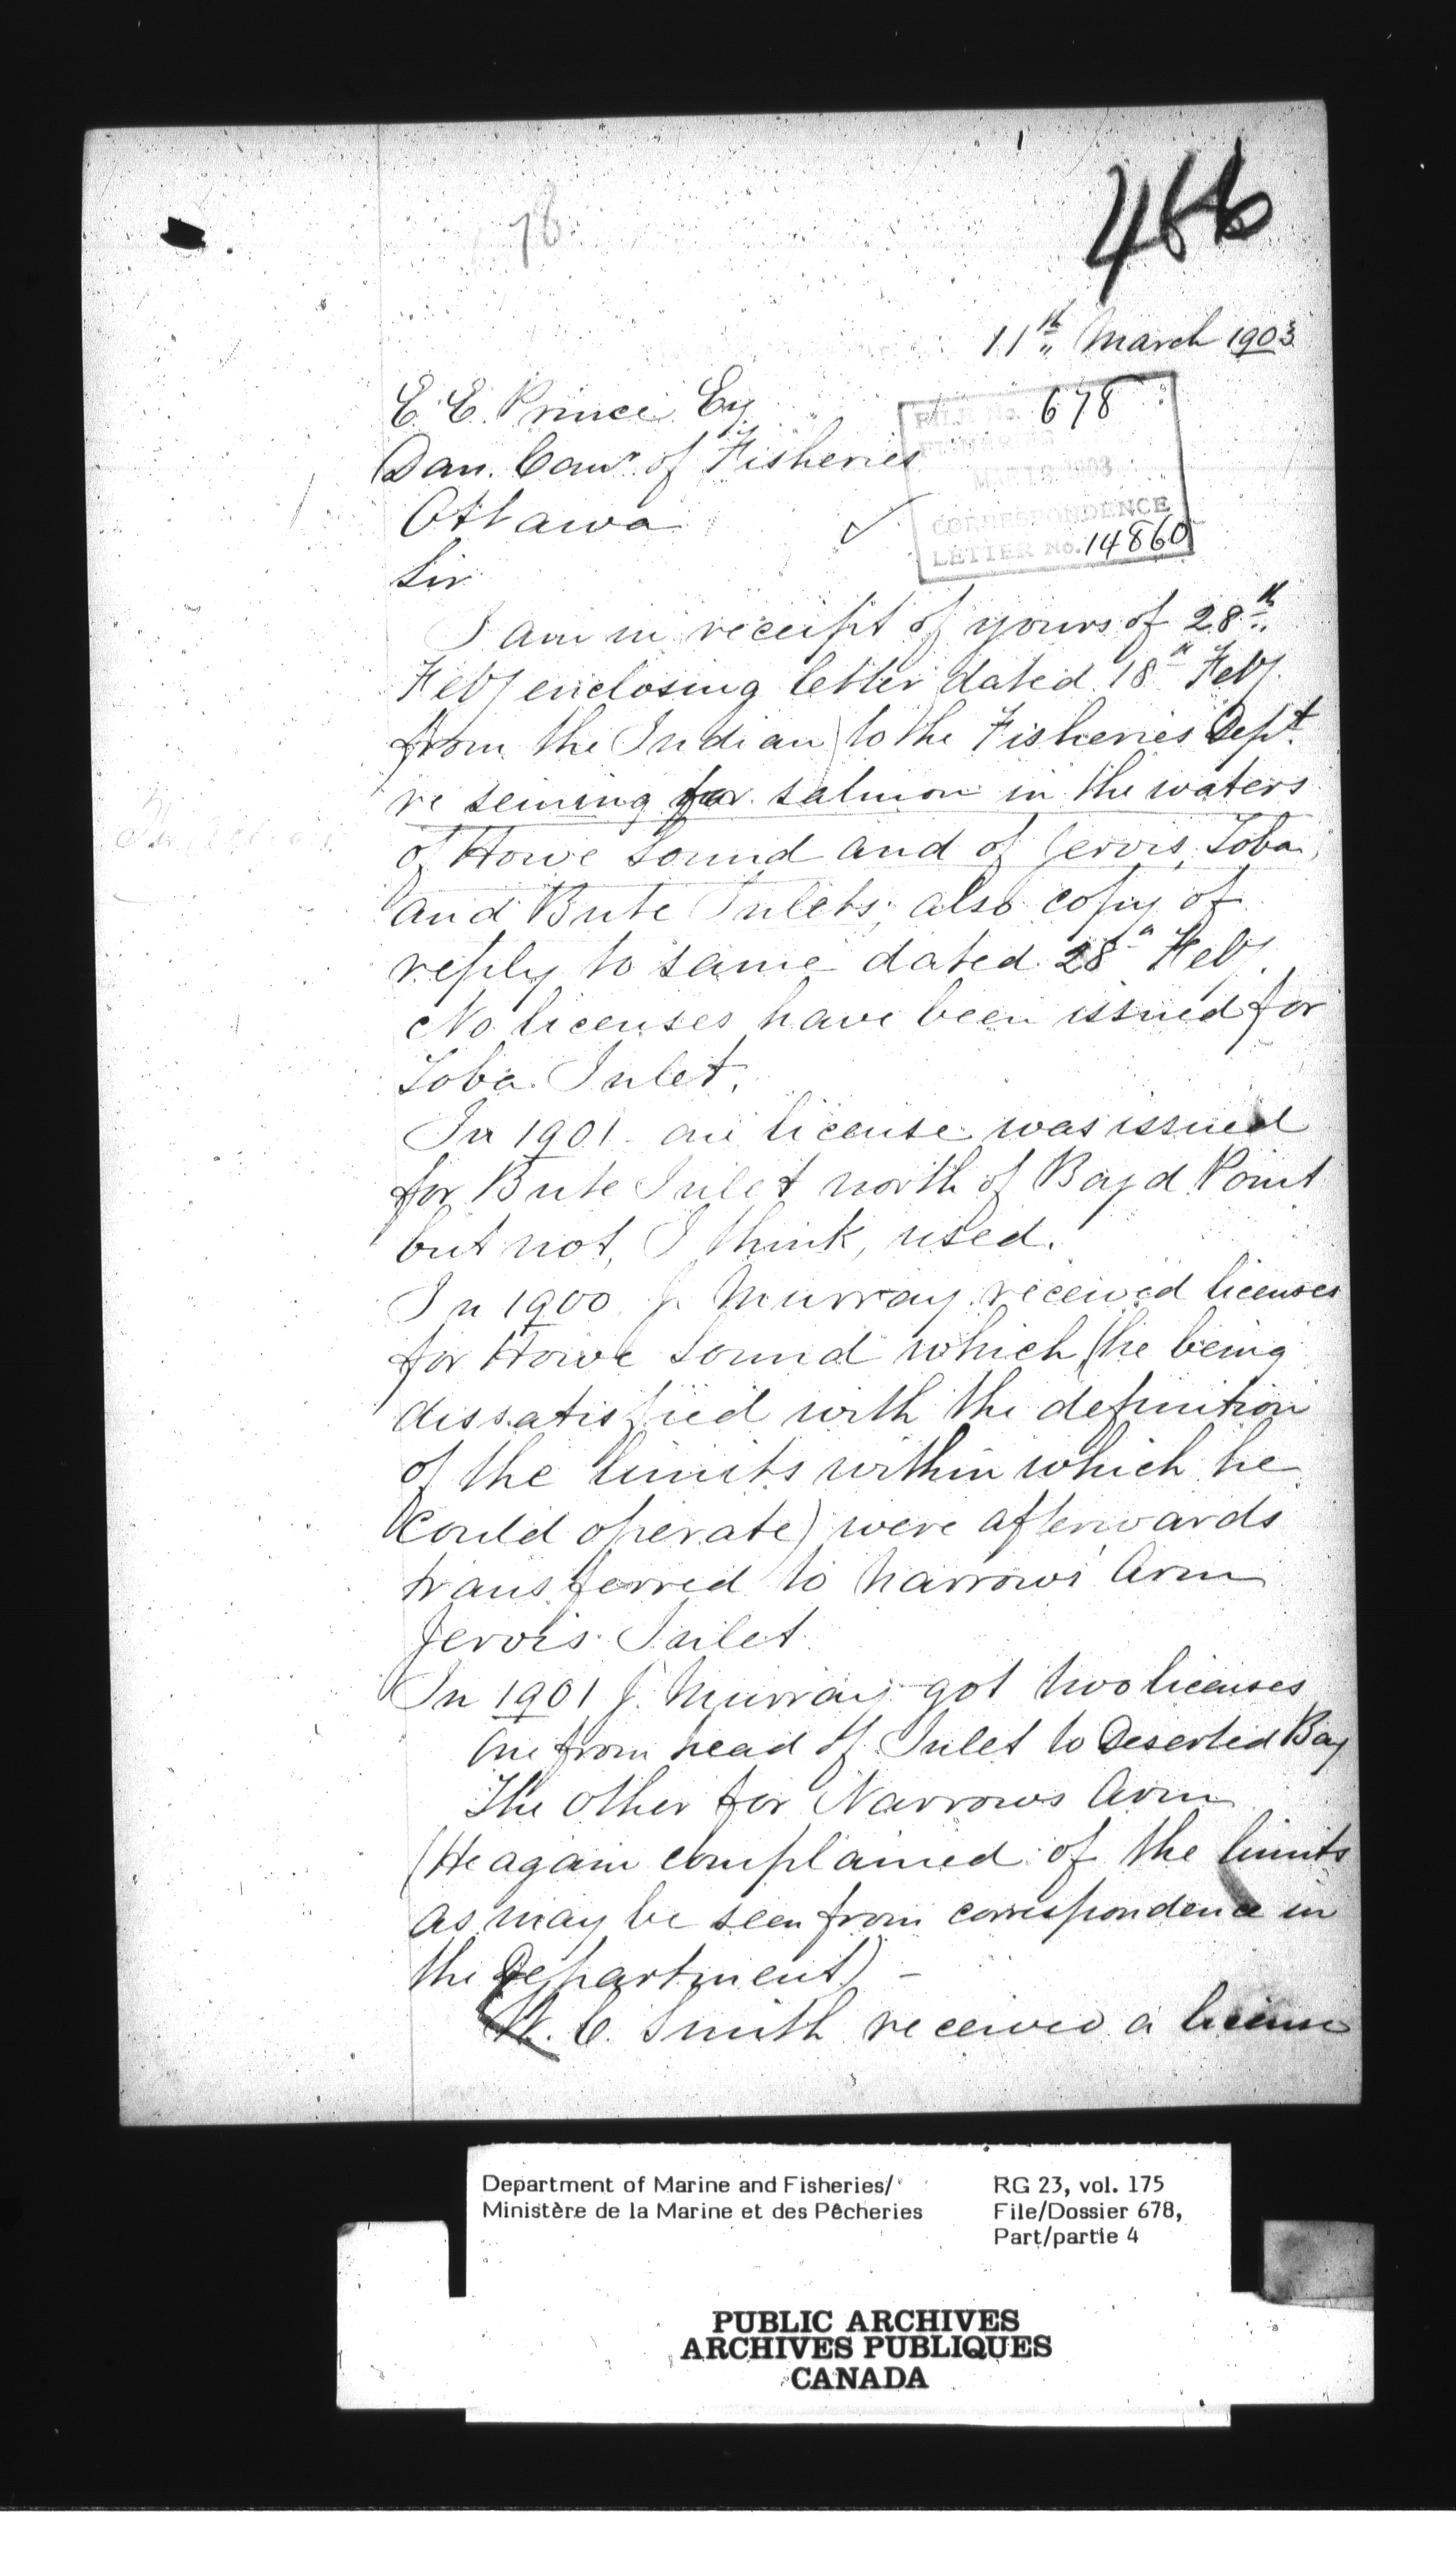 78
466
11th March 1903
E. E. Prince Esq
Dom. Comr. of Fisheries
Ottawa
FILE No. 678
FISHERIES
MAR 18 1903
CORRESPONDENCE
LETTER No. 14860
Sir
I am in receipt of yours of 28th
Feby enclosing letter dated 18th Feby.
from the Indian) to the Fisheries Dept.
re seining for salmon in the waters
of Howe Sound and of Jervis, Toba
and Bute Inlets; also copy of
reply to same dated 28th Feby.
No licenses have been issued for
Toba Inlet.
In 1901 one license was issued
for Bute Inlet north of Boyd Point
but not, I think, used.
In 1900 J. Murray received licenses
for Howe Sound which (he being
dissatisfied with the definition
of the limits within which he
could operate) were afterwards
transferred to Narrows Arm
Jervis Inlet.
In 1901 J. Murray got two licenses
One from head of Inlet to Deserted Bay
The other for Narrows Arm
(He again complained of the limits
as may be seen from correspondence in
the Department) -
W. C. Smith received a license
Department of Marine and Fisheries/
Ministère de la Marine et des Pêcheries
RG 23, vol. 175
File/Dossier 678,
Part/partie 4
PUBLIC ARCHIVES
ARCHIVES PUBLIQUES
CANADA